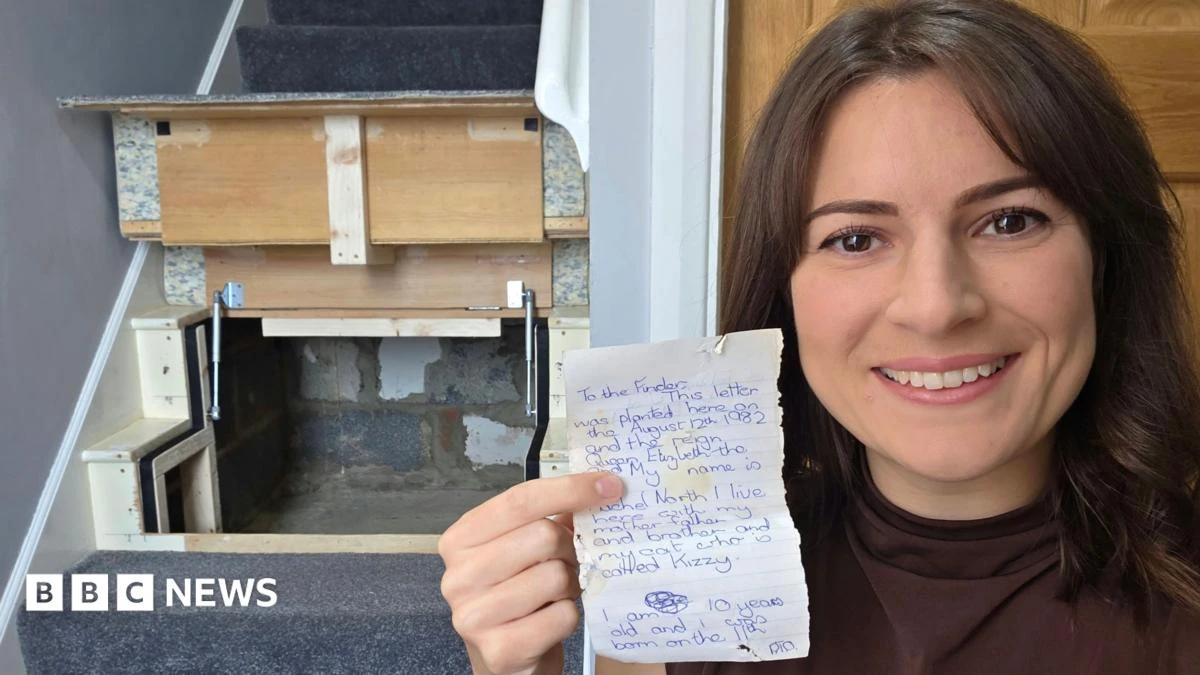 To the Finder.
This letter
was planted here on
the August 12th 1982
and the reign
Queen Elizybeth the
2nd My name is
Rachel North I live
here with my
mother father
and brother and
my cat who is
called Kizzy.
I am 10 years
old and i was
born on the 11th
PTO.
BBC NEWS